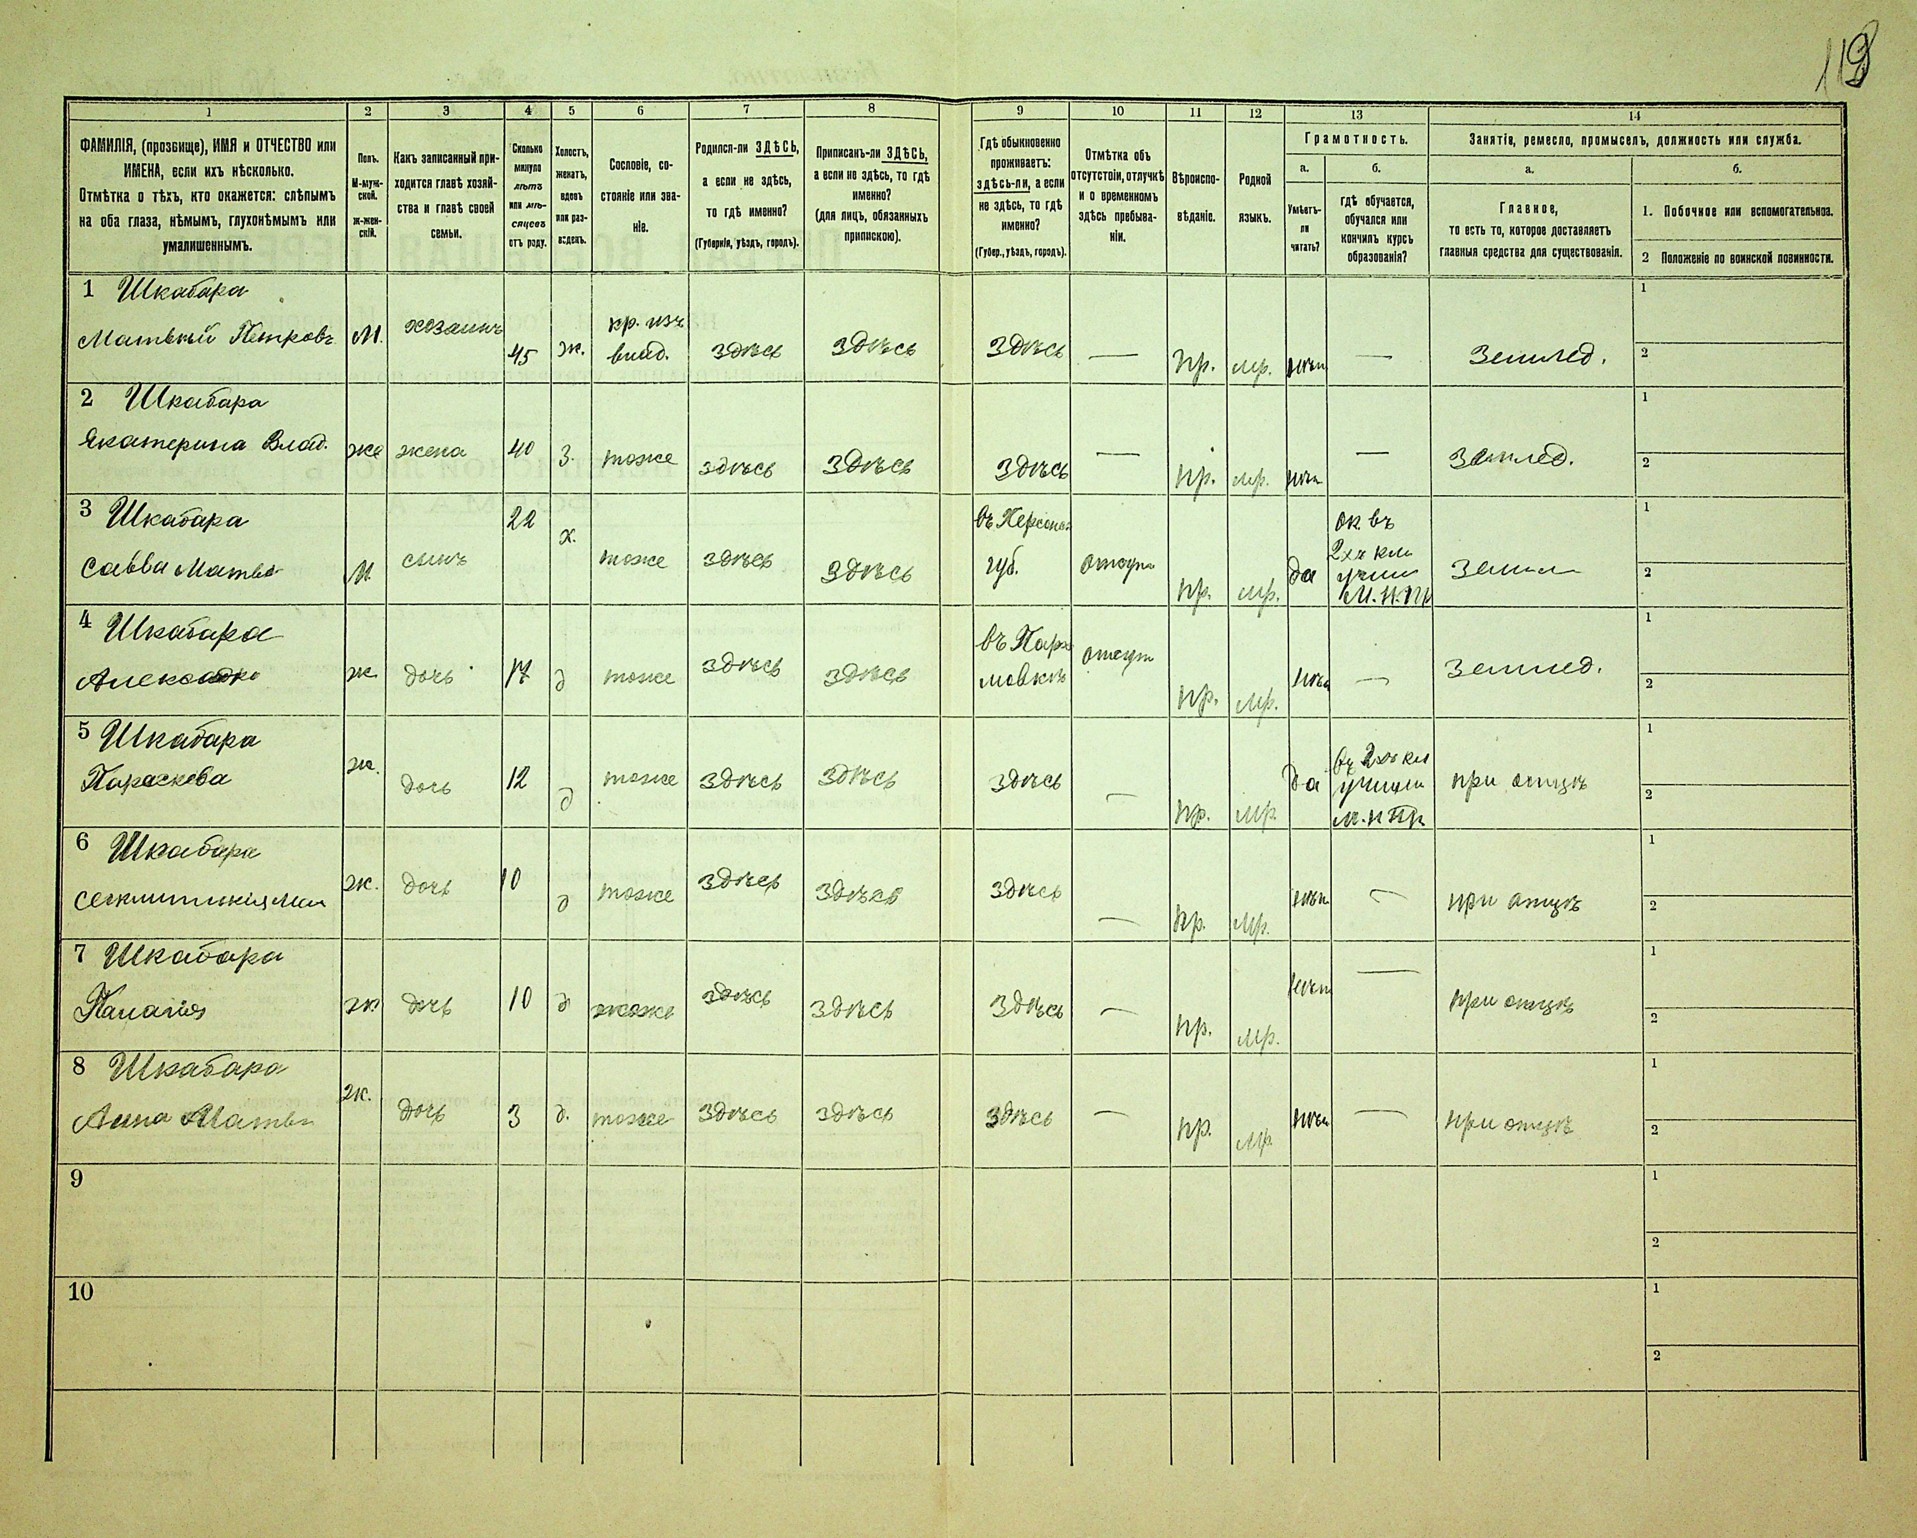 119
1 2 3 4 5 6 7 8 9 10 11 12 13 14
ФАМИЛІЯ, (прозвище), ИМЯ и ОТЧЕСТВО или
ИМЕНА, если ихъ нѣсколько.
Отмѣтка о тѣхъ, кто окажется: слѣпымъ
на оба глаза, нѣмымъ, глухонѣмымъ или
умалишеннымъ.
Полъ.
М-муж-
ской.
ж-жен-
скій.
Какъ записанный при-
ходится главѣ хозяй-
ства и главѣ своей
семьи.
Сколько
минуло
лѣтъ
или мѣ-
сяцевъ
отъ роду.
Холостъ,
женатъ,
вдовъ
или раз-
веденъ.
Сословіе, со-
стояніе или зва-
ніе.
Родился-ли ЗДѢСЬ,
а если не здѣсь,
то гдѣ именно?
(Губернія, уѣздъ, городъ).
Приписанъ-ли ЗДѢСЬ,
а если не здѣсь, то гдѣ
именно?
(для лицъ, обязанныхъ
припискою).
Гдѣ обыкновенно
проживаетъ:
здѣсь-ли, а если
не здѣсь, то гдѣ
именно?
(Губер., уѣздъ, городъ).
Отмѣтка объ
отсутствіи, отлучкѣ
и о временномъ
здѣсь пребыва-
ніи.
Вѣроиспо-
вѣданіе.
Родной
языкъ.
Грамотность.
а.
Умѣетъ-
ли
читать?
б.
гдѣ обучается,
обучался или
кончилъ курсъ
образованія?
Занятія, ремесло, промыселъ, должность или служба.
а.
Главное,
то есть то, которое доставляетъ
главныя средства для существованія.
б.
1. Побочное или вспомогательное.
2 Положеніе по воинской повинности.
1 Шкабара
Матвѣй Петровъ М. хозяинъ 45 ж. кр. изъ
влад. здѣсь здѣсь здѣсь — пр. мр. нѣтъ — Землед.
1
2
2 Шкабара
Екатерина Влад. же жена 40 З. тоже здѣсь здѣсь здѣсь — пр. мр. нѣтъ — Землед.
1
2
3 Шкабара
Савва Матвѣ М. сынъ 22 х. тоже здѣсь здѣсь въ Херсонс
губ. отсут пр. мр. да ок. въ
2хъ кл
учил
М. Н. Пр Земл
1
2
4 Шкабара
ж. дочь 17 д тоже здѣсь здѣсь отсут пр. мр. нѣтъ — Землед.
1
2
5 Шкабара
Параскева ж. дочь 12 д тоже здѣсь здѣсь здѣсь — пр. мр да въ 2хъ кл
училищ
м. н Пр при отцѣ
1
2
6 Шкабара
ж. дочь 10 д тоже здѣсь здѣсь здѣсь — пр. мр. нѣтъ — при отцѣ
1
2
7 Шкабара
ж. дочь 10 д тоже здѣсь здѣсь здѣсь — пр. мр. нѣтъ — при отцѣ
1
2
8 Шкабара
Анна Матвѣ ж. дочь 3 д. тоже здѣсь здѣсь здѣсь — пр. мр. нѣтъ — при отцѣ
1
2
9
1
2
10
1
2